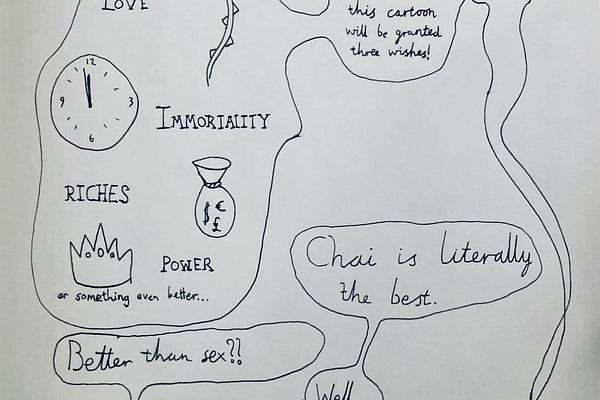 LOVE
this cartoon
will be granted
three wishes!
12
9 3
6
IMMORTALITY
RICHES
$ €
£
POWER
or something even better...
Chai is literally
the best.
Better than sex??
Well